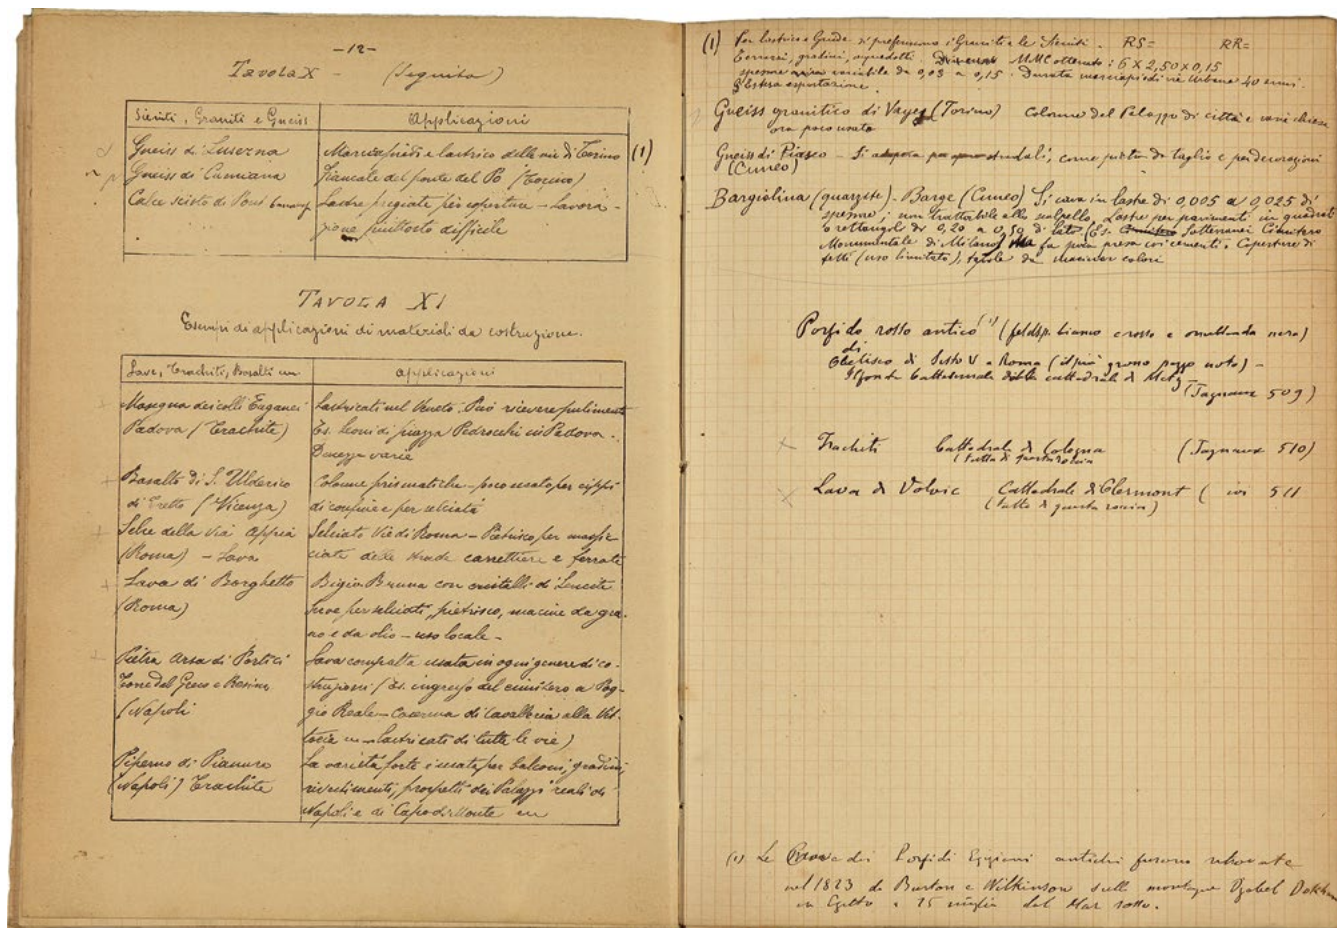 -12-
Tavola X - (Seguito)
Sieniti, Graniti e Gneiss
Applicazioni
Gneiss di Luserna
Marciapiedi e lastrico delle vie di Torino (1)
Gneiss di Cumiana
Fiancate del ponte del Po (Torino)
Calce scisto di Pont
Lastre pregiate per coperture - Lavora-
zione piuttosto difficile
TAVOLA XI
Esempi di applicazioni di materiali da costruzione.
Lave, Trachiti, Basalti
Applicazioni
Masegna dei colli Euganei
Padova (Trachite)
Lastricati nel Veneto. Può ricevere pulimento
Es. Leoni di piazza Pedrocchi in Padova.
Durezza varie
Basalto di S. Ulderico
di Tretto (Vicenza)
Colonne prismatiche - poco usato per cippi
di confine e per selciati
Selce della Via Appia
(Roma) - Lava
Selciato Vie di Roma - Pietrisco per massic
ciate delle strade carrettiere e ferrate
Lava di Borghetto
(Roma)
Bigio Bruna con cristalli di Leucite
serve per selciati, pietrisco, macine da gra-
no e da olio - uso locale -
Pietra Arsa di Portici
Torre del Greco e Resina
(Napoli
Lava compatta usata in ogni genere di co-
struzioni (Es. ingresso del cimitero a Pog-
gio Reale - Caserma di Cavalleria alla Vit-
toria - lastricati di tutte le vie)
Piperno di Pianura
(Napoli) Trachite
La varietà forte è usata per balconi, gradini,
rivestimenti, prospetti dei Palazzi reali di
Napoli e di Capodimonte
(1) Per lastrici e Guide si preferiscono i Graniti e le Sieniti. RS= RR=
Terrazzi, gradini, acquedotti. MMC ottenuto: 6 X 2,50 X 0,15
spessore variabile da 0,03 a 0,15. Durata marciapiedi vie Urbane 40 anni.
Estesa esportazione.
Gneiss granitico di Vayes (Torino) Colonne del Palazzo di città e varie chiese
ora poco usato
Gneiss di Piasco - Si adopera per stradali, come pietra da taglio e per decorazioni
(Cuneo)
Bargiolina (quarzite) - Barge (Cuneo) Si cava in lastre di 0,005 a 0,025 di
spessore; non trattabile allo scalpello. Lastre per pavimenti in quadrati
o rettangoli di 0,20 a 0,50 di lato (Es. Sotterranei Cimitero
Monumentale di Milano) Ma fa poca presa coi cementi. Coperture di
tetti (uso limitato), tavole da macinar colori
Porfido rosso antico (1) (feldsp. bianco e rosso e orneblenda nera)
Obelisco di Sisto V a Roma (il più grosso pezzo noto) -
Il fonte battesimale della cattedrale di Metz -
(Jagnaux 509)
Trachiti Cattedrale di Cologna (Jagnaux 510)
(tutta di questa roccia
Lava di Volvic Cattedrale di Clermont ( ivi 511
(tutto di questa roccia)
(1) Le Cave dei Porfidi Egiziani antichi furono ritrovate
nel 1823 da Burton e Wilkinson sulle montagne Djebel
in Egitto a 25 miglia dal Mar rosso.